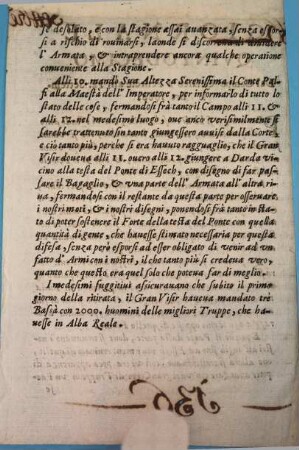 se desolato, e con la stagione assai avanzata, senza espor-
si a rischio di rouinarsi, laonde si discorreua
l'Armata, & intraprendere ancora qualche operatione
conueniente alla Stagione.
Alli 10. mandò Sua Altezza Serenissima il Conte Pal-
fi alla Maestà dell'Imperatore, per informarlo di tutto lo
stato delle cose, fermandosi frà tanto il Campo alli 11. &
alli 12. nel medesimo luogo, oue anco verisimilmente si
sarebbe trattenuto sin tanto giungessero auuisi dalla Corte,
e ciò tanto più, perche si era hauuto ragguaglio, che il Gran
Visir doueua alli 11. ouero alli 12. giungere a Darda vi-
cino alla testa del Ponte di Essech, con disegno di far pas-
sare il Bagaglio, & vna parte dell'Armata all'altra ri-
ua, fermandosi con il restante da questa parte per osseruare,
i nostri moti, & i nostri disegni, ponendosi frà tanto in sta-
to di poter sostenere il Forte della testa del Ponte con quella
quantità di gente, che hauesse stimato necessaria per questa
difesa, senza però esporsi ad esser obligato di venir ad vn
fatto d'Armi con i nostri, il che tanto più si credeua vero,
quanto che questo era quel solo che poteua far di meglio.
I medesimi fuggitiui assicurauano che subito il primo
giorno della ritirata, il Gran Visir haueua mandato trè
Bassà con 2000. huomini delle migliori Truppe, che ha-
uesse in Alba Reale.